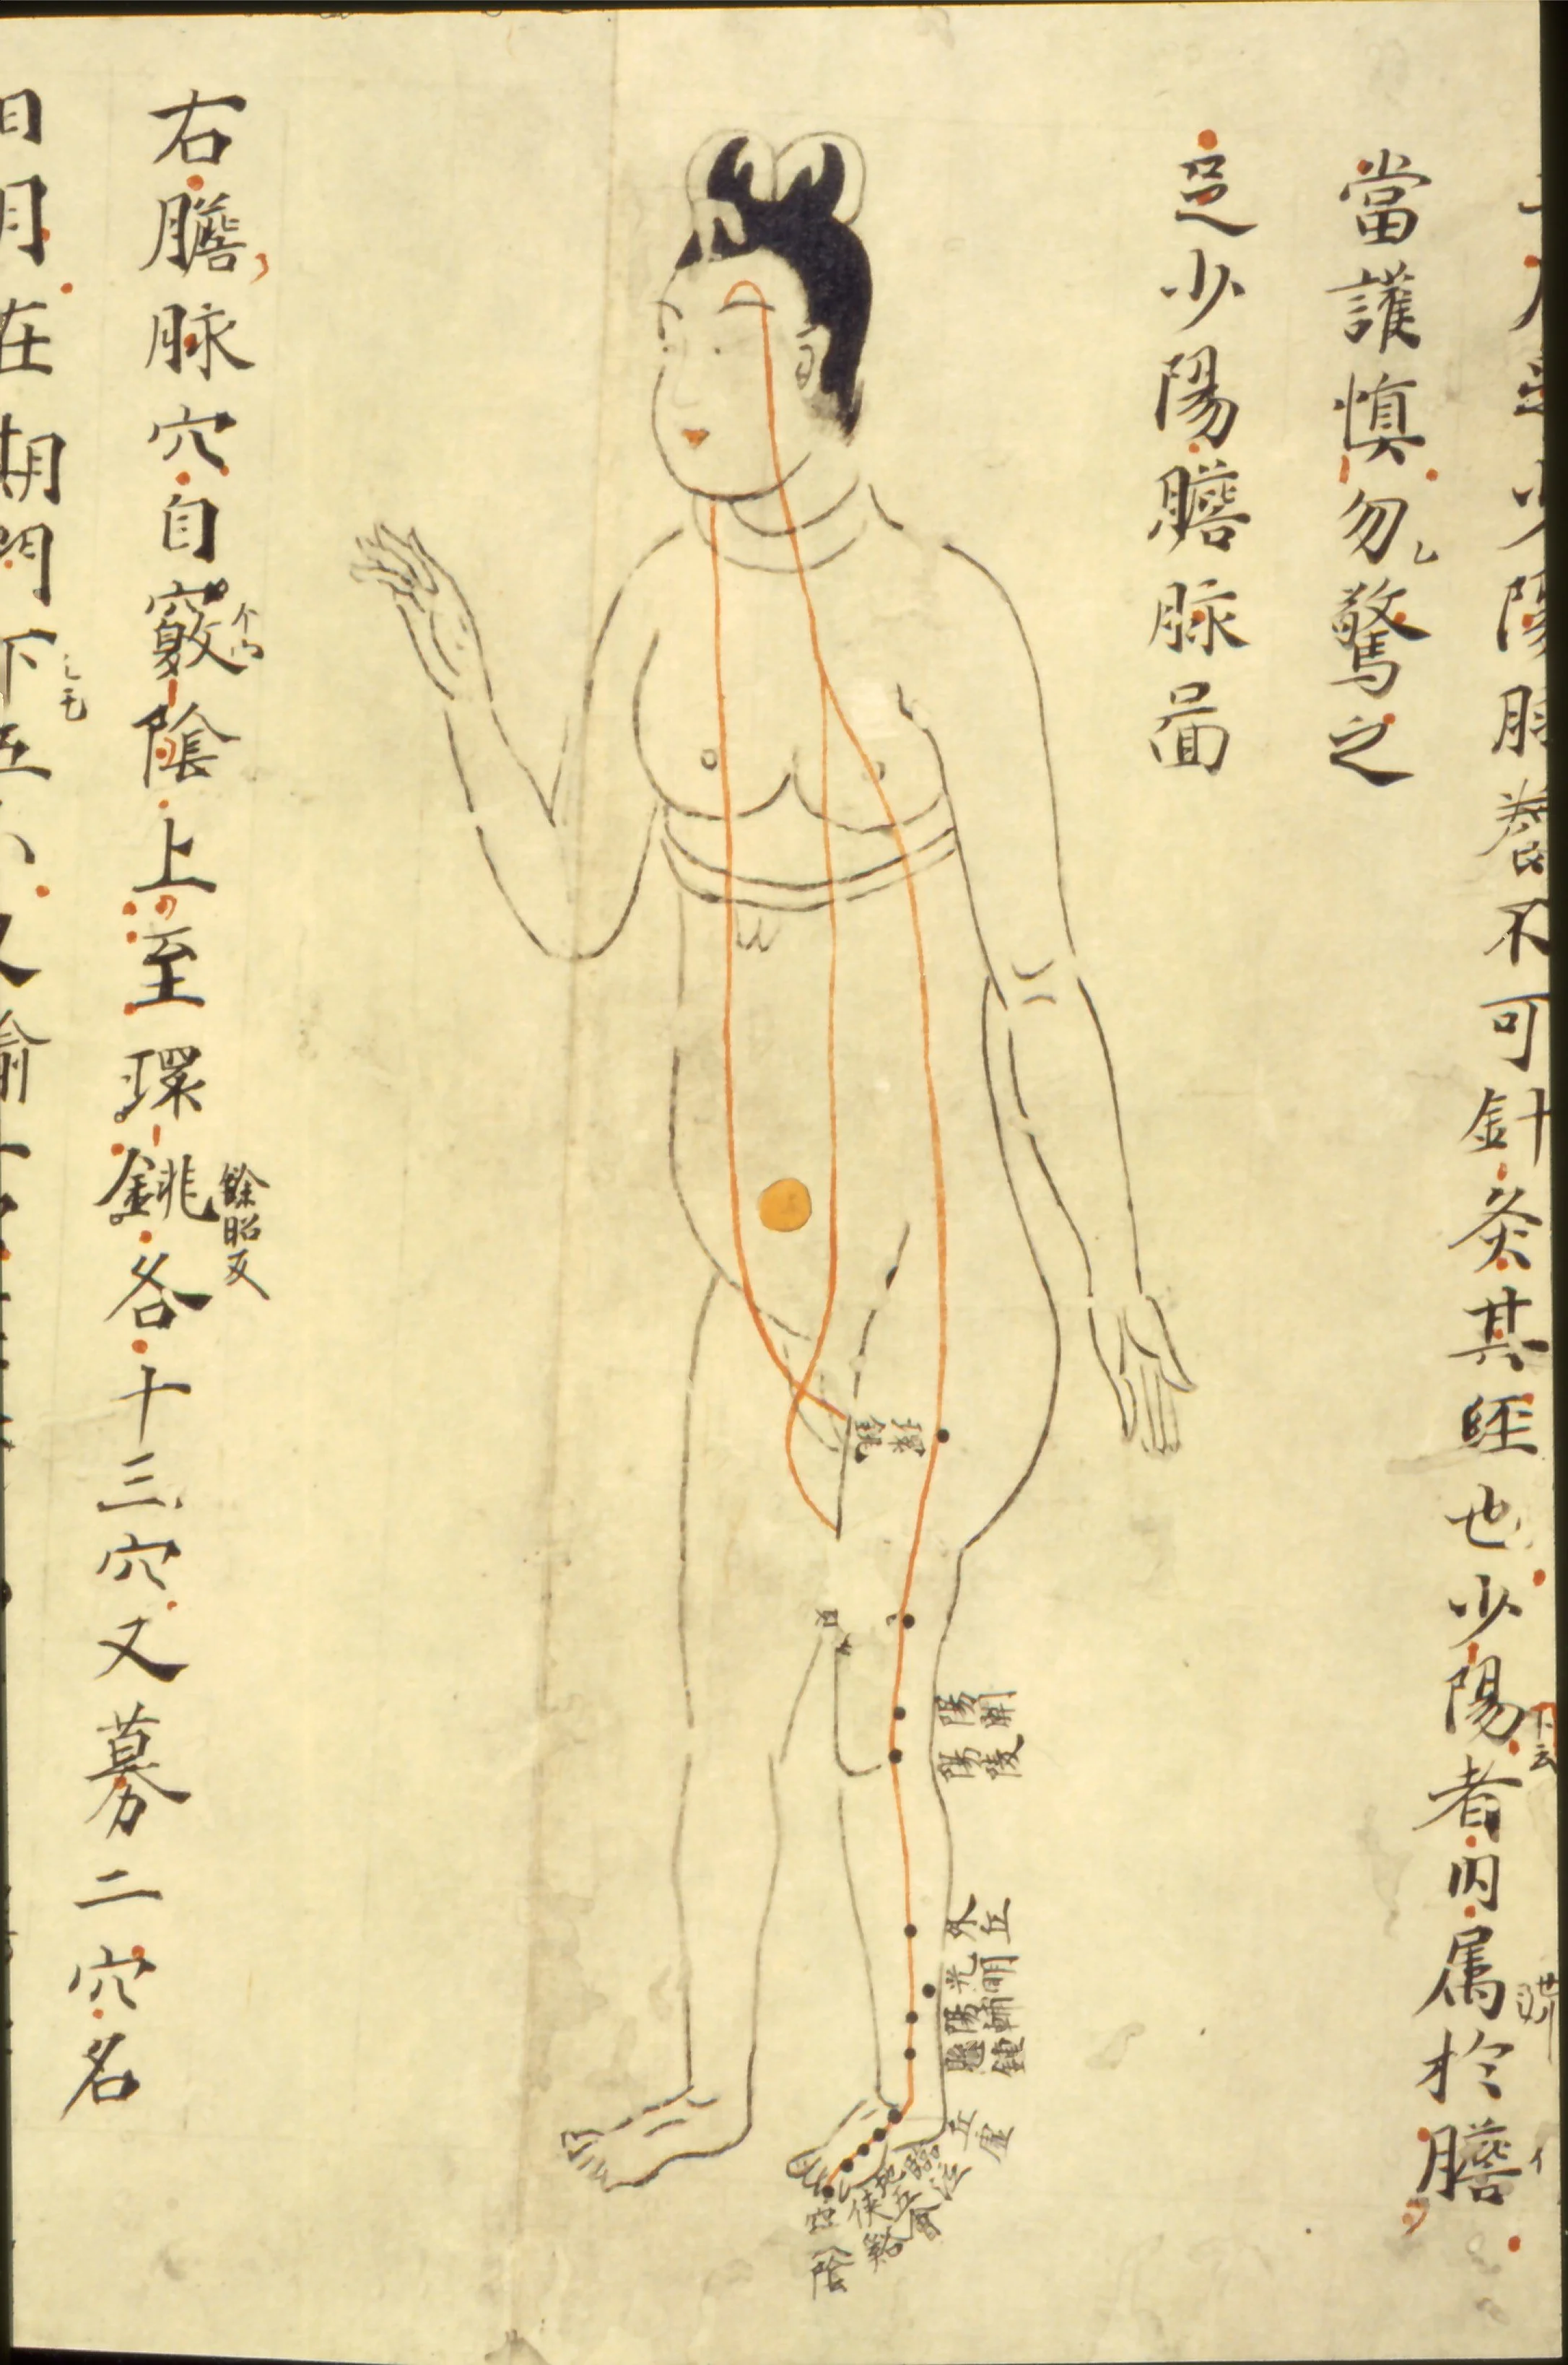 少陽脉養不可針灸其經也少陽者内属於膽
當護慎勿驚之
足少陽膽脉圖
環銚
陽開
陽陵
外丘
光明
陽輔
懸鍾
丘虛
臨泣
地五會
俠谿
竅陰
右膽脉穴自竅陰上至環銚各十三穴又募二穴名
餘昭反
日月在期門下五分又輸